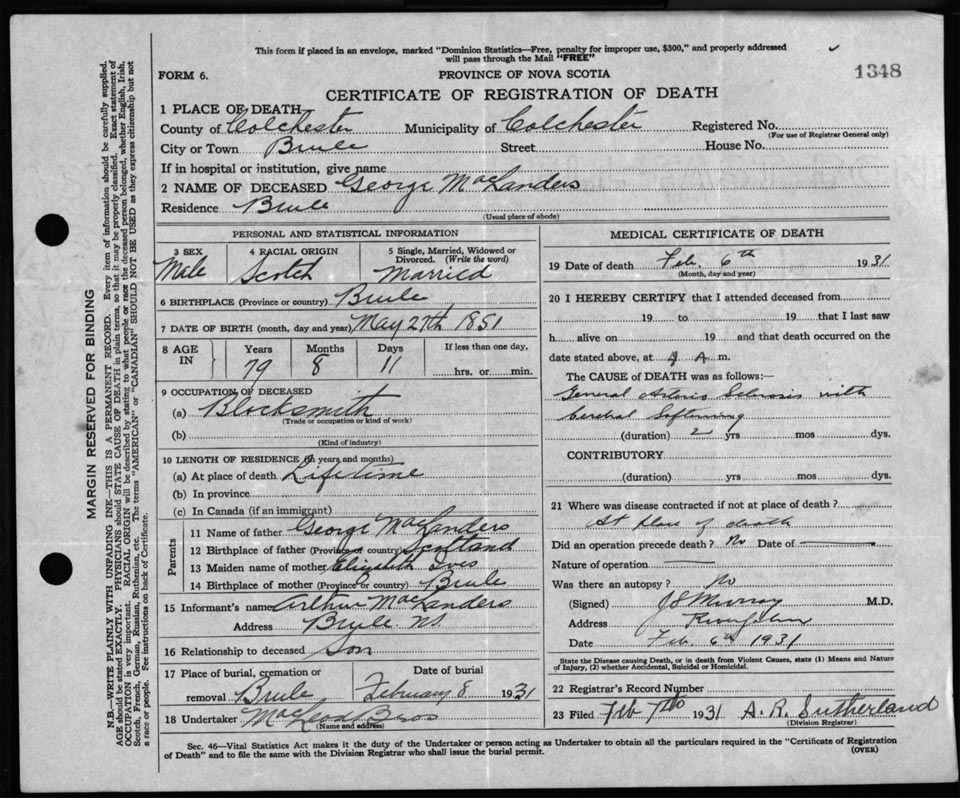 This form if placed in an envelope, marked "Dominion Statistics—Free, penalty for improper use, $300," and properly addressed
will pass through the Mail "FREE"
1348
FORM 6.
PROVINCE OF NOVA SCOTIA
CERTIFICATE OF REGISTRATION OF DEATH
1 PLACE OF DEATH
County of Colchester Municipality of Colchester Registered No.
(For use of Registrar General only)
City or Town Brule Street House No.
If in hospital or institution, give name
2 NAME OF DECEASED George MacLanders
Residence Brule
(Usual place of abode)
PERSONAL AND STATISTICAL INFORMATION
3 SEX 4 RACIAL ORIGIN 5 Single, Married, Widowed or
Divorced. (Write the word)
Male Scotch Married
6 BIRTHPLACE (Province or country) Brule
7 DATE OF BIRTH (month, day and year) May 27th 1851
8 AGE IN Years Months Days If less than one day,
79 8 11 hrs. or min.
9 OCCUPATION OF DECEASED
(a) Blocksmith
(Trade or occupation or kind of work)
(b)
(Kind of industry)
10 LENGTH OF RESIDENCE (in years and months)
(a) At place of death Lifetime
(b) In province
(c) In Canada (if an immigrant)
Parents
11 Name of father George MacLanders
12 Birthplace of father (Province or country) Scotland
13 Maiden name of mother Elizabeth Ives
14 Birthplace of mother (Province or country) Brule
15 Informant's name Arthur MacLanders
Address Brule N.S.
16 Relationship to deceased Son
17 Place of burial, cremation or Date of burial
removal Brule February 8 1931
18 Undertaker MacLeod Bros
(Name and address)
MEDICAL CERTIFICATE OF DEATH
19 Date of death Feb. 6th 1931
(Month, day and year)
20 I HEREBY CERTIFY that I attended deceased from
19 to 19 that I last saw
h alive on 19 and that death occurred on the
date stated above, at A m.
The CAUSE of DEATH was as follows:—
General Arterio Sclerosis with
Cerebral Softening
(duration) 2 yrs mos dys.
CONTRIBUTORY
(duration) yrs mos dys.
21 Where was disease contracted if not at place of death?
At place of death
Did an operation precede death? No Date of
Nature of operation
Was there an autopsy? No
(Signed) J S Murray M.D.
Address River John
Date Feb. 6th 1931
State the Disease causing Death, or in death from Violent Causes, state (1) Means and Nature
of Injury, (2) whether Accidental, Suicidal or Homicidal.
22 Registrar's Record Number
23 Filed Feb 7th 1931 A. R. Sutherland
(Division Registrar)
Sec. 46—Vital Statistics Act makes it the duty of the Undertaker or person acting as Undertaker to obtain all the particulars required in the "Certificate of Registration
of Death" and to file the same with the Division Registrar who shall issue the burial permit.
(OVER)
MARGIN RESERVED FOR BINDING
N.B.—WRITE PLAINLY WITH UNFADING INK—THIS IS A PERMANENT RECORD. Every item of information should be carefully supplied.
AGE should be stated EXACTLY. PHYSICIANS should STATE CAUSE OF DEATH in plain terms, so that it may be properly classified. Exact statement of
OCCUPATION is very important. RACIAL ORIGIN will be described by stating to what people or race the deceased person belonged, whether English, Irish,
Scotch, French, German, Russian, Ruthenian, etc. The terms "AMERICAN" or "CANADIAN" SHOULD NOT BE USED as they express citizenship but not
a race or people. See instructions on back of Certificate.